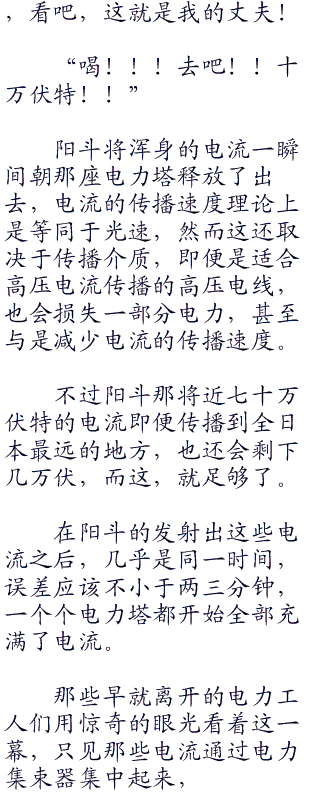 ，看吧，这就是我的丈夫！
“喝！！！去吧！！十
万伏特！！”
阳斗将浑身的电流一瞬
间朝那座电力塔释放了出
去，电流的传播速度理论上
是等同于光速，然而这还取
决于传播介质，即便是适合
高压电流传播的高压电线，
也会损失一部分电力，甚至
与是减少电流的传播速度。
不过阳斗那将近七十万
伏特的电流即便传播到全日
本最远的地方，也还会剩下
几万伏，而这，就足够了。
在阳斗的发射出这些电
流之后，几乎是同一时间，
误差应该不小于两三分钟，
一个个电力塔都开始全部充
满了电流。
那些早就离开的电力工
人们用惊奇的眼光看着这一
幕，只见那些电流通过电力
集束器集中起来，